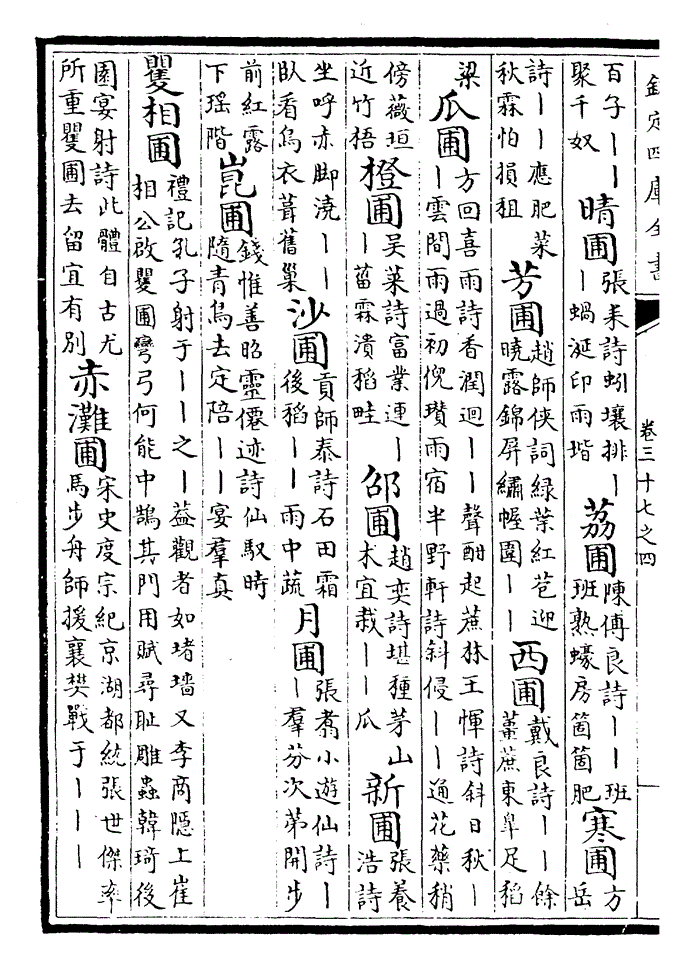 欽定四庫全書 卷三十七之四
百子丨丨聚千奴 晴圃 張耒詩蚓壤排丨丨蝸涎印雨堦 荔圃 陳傅良詩丨丨班班熟蠔房箇箇肥 寒圃 方岳
詩丨丨應肥菜秋霖怕損租 芳圃 趙師侠詞綠葉紅苞迎曉露錦屏繡幄圍丨丨 西圃 戴良詩丨丨餘薑蔗東臯足稻
梁 瓜圃 方回喜雨詩香潤迴丨丨聲酣起蔗林王惲詩斜日秋丨丨雲間雨過初倪瓚雨宿半野軒詩斜侵丨丨通花藥稍
傍薇垣近竹梧 橙圃 吴萊詩富業連丨丨菑霖潰稻畦 邵圃 趙奕詩堪種茅山术宜栽丨丨瓜 新圃 張養浩詩
坐呼赤脚澆丨丨臥看烏衣葺舊巢 沙圃 貢師泰詩石田霜後稻丨丨雨中蔬 月圃 張翥小遊仙詩丨丨羣芬次苐開步
前紅露下瑶階 崑圃 錢惟善昭靈僊迹詩仙馭時隨青鳥去定陪丨丨宴羣真
矍相圃 禮記孔子射于丨丨之丨葢觀者如堵墻又李商隱上崔相公啟矍圃彎弓何能中鵠其門用賦尋恥雕蟲韓琦後
園宴射詩此體自古尤所重矍圃去留宜有別 赤灘圃 宋史度宗紀京湖都統張世傑率馬步舟師援襄樊戰于丨丨丨